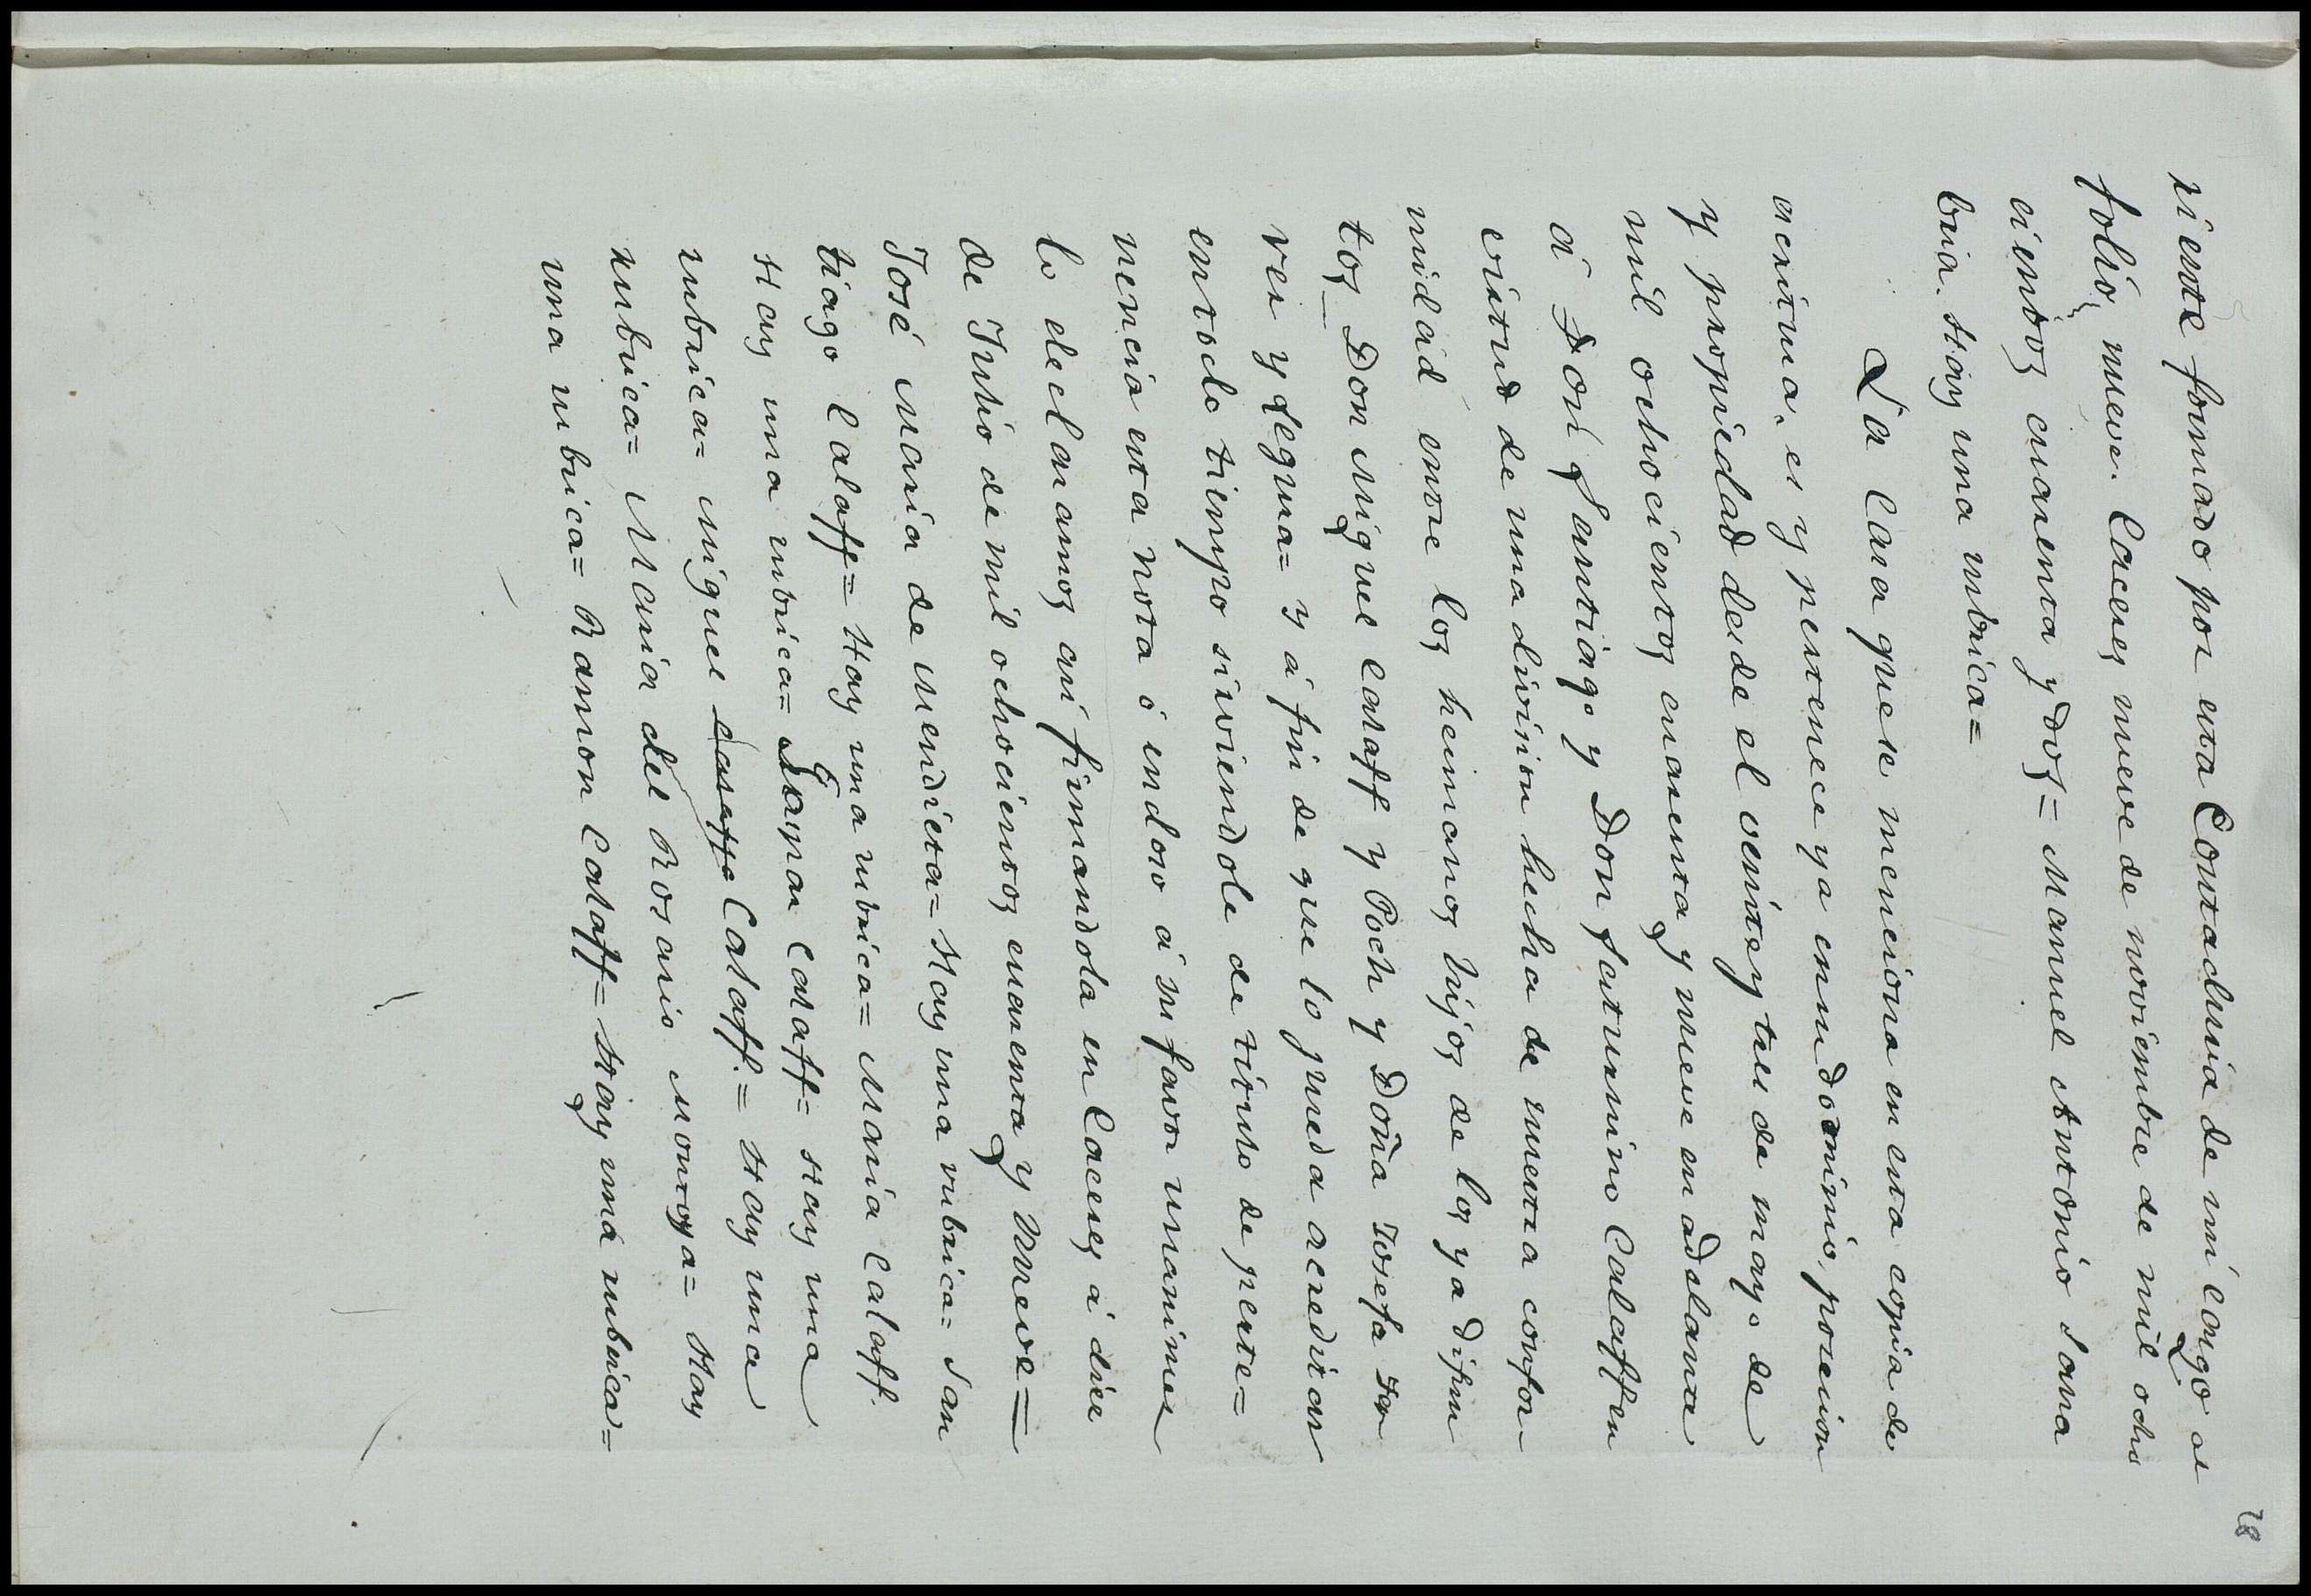 28
riente formado por esta Contaduria de mi cargo al
folio, nueve. Caceres nueve de noviembre de mil ocho
cientos cuarenta y dos = Manuel Antonio Sana
bria. Hay una rubrica =
La Casa que se menciona en esta copia de
acritura, es y pertenece ya en undominio, posesion
y propiedad desde el veinte y tres de mayo de
mil ochocientos cuarenta y nueve en adelante
á Don Santiago y Don Saturnino Calaff en
virtud de una division hecha de nuestra confor-
midad entre los hermanos hijos de los ya difun
tos Don Miguel Calaff y Poch y Doña Josefa
ver y Segura = y á fin de que lo pueda acreditar
entodo tiempo sirviendole de titulo de perte=
nencia esta nota ó endoso á su favor unanimes
lo declaramos asi firmandola en Caceres á diez
de Julio de mil ochocientos cuarenta y nueve =
José Maria de Mendieta = Hay una rubrica = San
tiago Calaff = Hay una rubrica = Maria Calaff.
Hay una rubrica = Gaspar Calaff = Hay una
rubrica = Miguel Calaff. = Hay una
rubrica = Maria del Rosario Montoya = Hay
una rubrica = Ramon Calaff = Hay una rubrica =